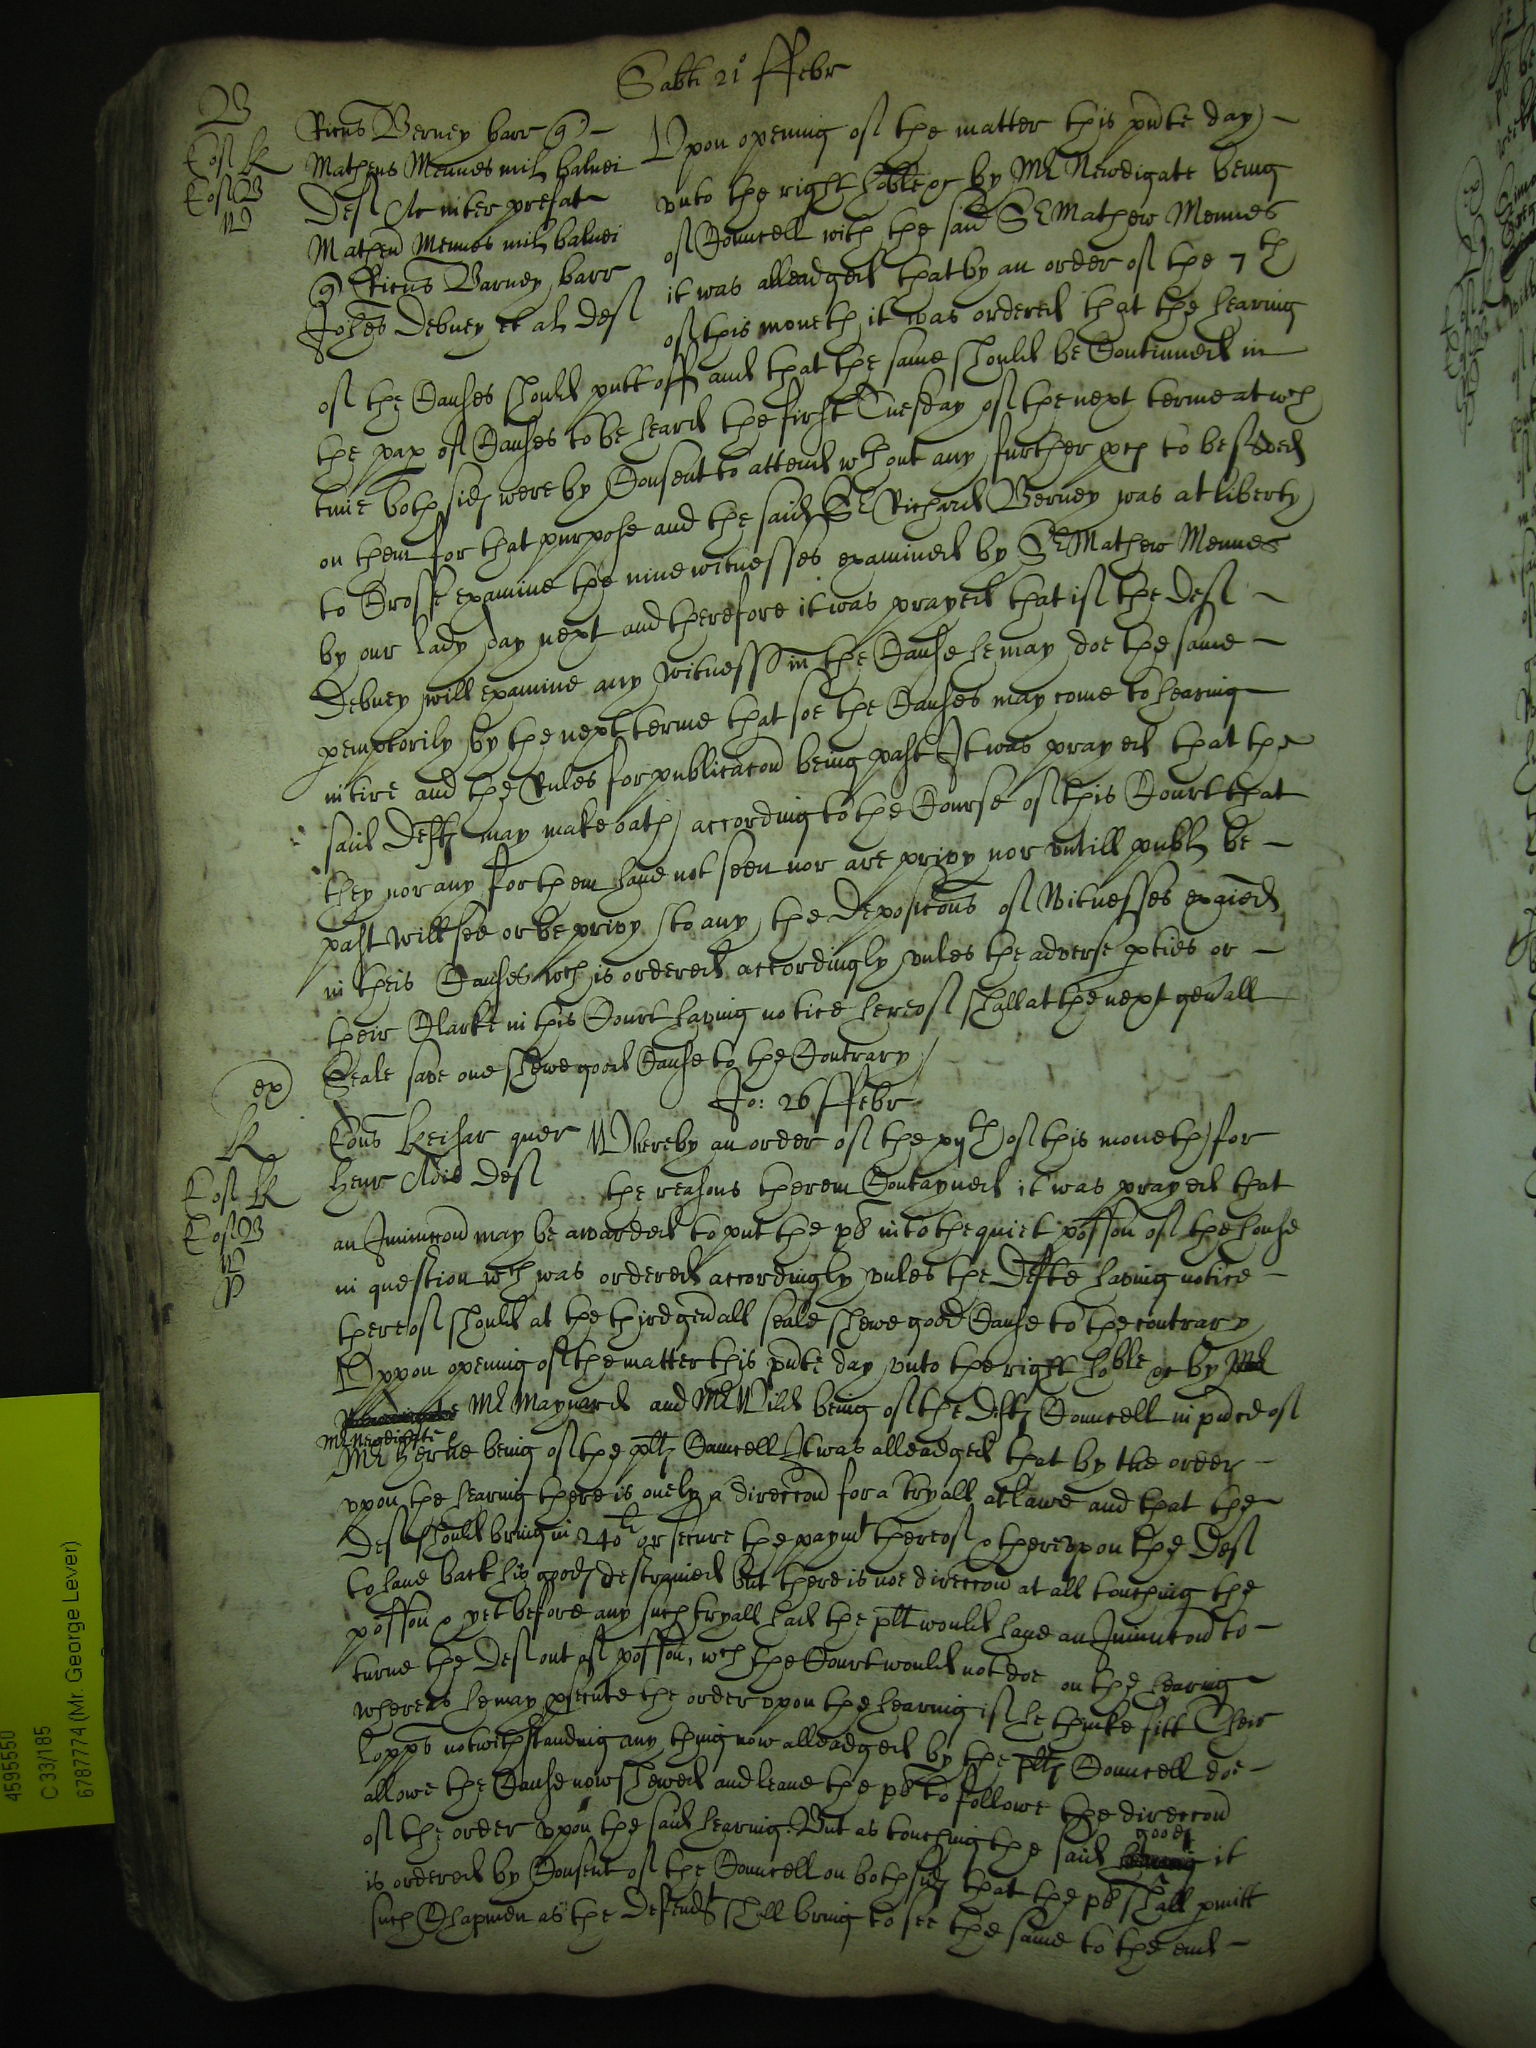 Sabti 21° ffebr
B
Ricus Berney barr q
Matheus Mennes mil balnei
Def Ac inter prefat
Matheu Mennes mil balnei
q Ricus Barney barr
Johes Debney et al def
Vpon opening of the matter this pnte day
vnto the right hoble &c by Mr Newdigate being
of Councell with the said Sr Mathew Mennes
it was alleadged that by an order of the 7th
of this moneth it was ordered that the hearing
of the Causes should putt off and that the same should be Continued in
the pap of Causes to be heard the first Tuesday of the next terme at wch
time both sides were by Consent to attend wthout any further pces to be served
on them for that purpose and the said Sr Richard Berney was at liberty
to Crosse examine the nine witnesses examined by Sr Mathew Mennes
by our lady day next and therefore it was prayed that if the Def
Debney will examine any witnesses in the Cause he may doe the same
pemptorily by the next terme that soe the Causes may come to hearing
intire and the Rules for publicacon being past It was prayed that the
said Defts may make oath according to the Course of this Court that
they nor any for them have not seen nor are privy nor vntill publ be
past will see or be privy to any the Deposicons of Witnesses exaied
in theis Causes wch is ordered accordingly vnles the adverse pties or
their Clarke in this Court having notice hereof shall at the next genall
Seale save one shewe good Cause to the Contrary
Jo: 26 ffebr
ex
K
Cons Keisar quer
Henr Adis Def
Whereby an order of the xijth of this moneth for
the reasons therein Contayned it was prayed that
an Iniunccon may be awarded to put the pl into the quiet possion of the house
in question wch was ordered accordingly vnles the Defte having notice
thereof should at the third genall seale shewe good Cause to the contrary
Vppon opening of the matter this pnte day vnto the right hoble &c by
Mr Maynard and Mr Wild being of the Defts Councell in pnce of
Mr Newdigate
being of the plts Councell It was alleadged that by the order
vpon the hearing there is onely a direccon for a tryall at lawe and that the
Def should bring in 240li or secure the paymt thereof & therevpon the Def
to have back his goods destrained but there is noe direccon at all touching the
possion & yet before any such tryall had the plt would have an Iniunccon to
turne the Def out of possion, wch the Court would not doe on the hearing
whereas he may psecute the order vpon the hearing if he thinke fitt Their
Lopps notwithstanding any thing now alleadged by the plts Councell doe
allowe the Cause now shewed and leave the pl to followe the direccon
of the order vpon the said hearing. But as touching the said goods it
is ordered by Consent of the Councell on both sides that the pl shall pmitt
such Chapmen as the Defendt shall bring to see the same to the end
4595550
C 33/185
6787774 (Mr. George Lever)